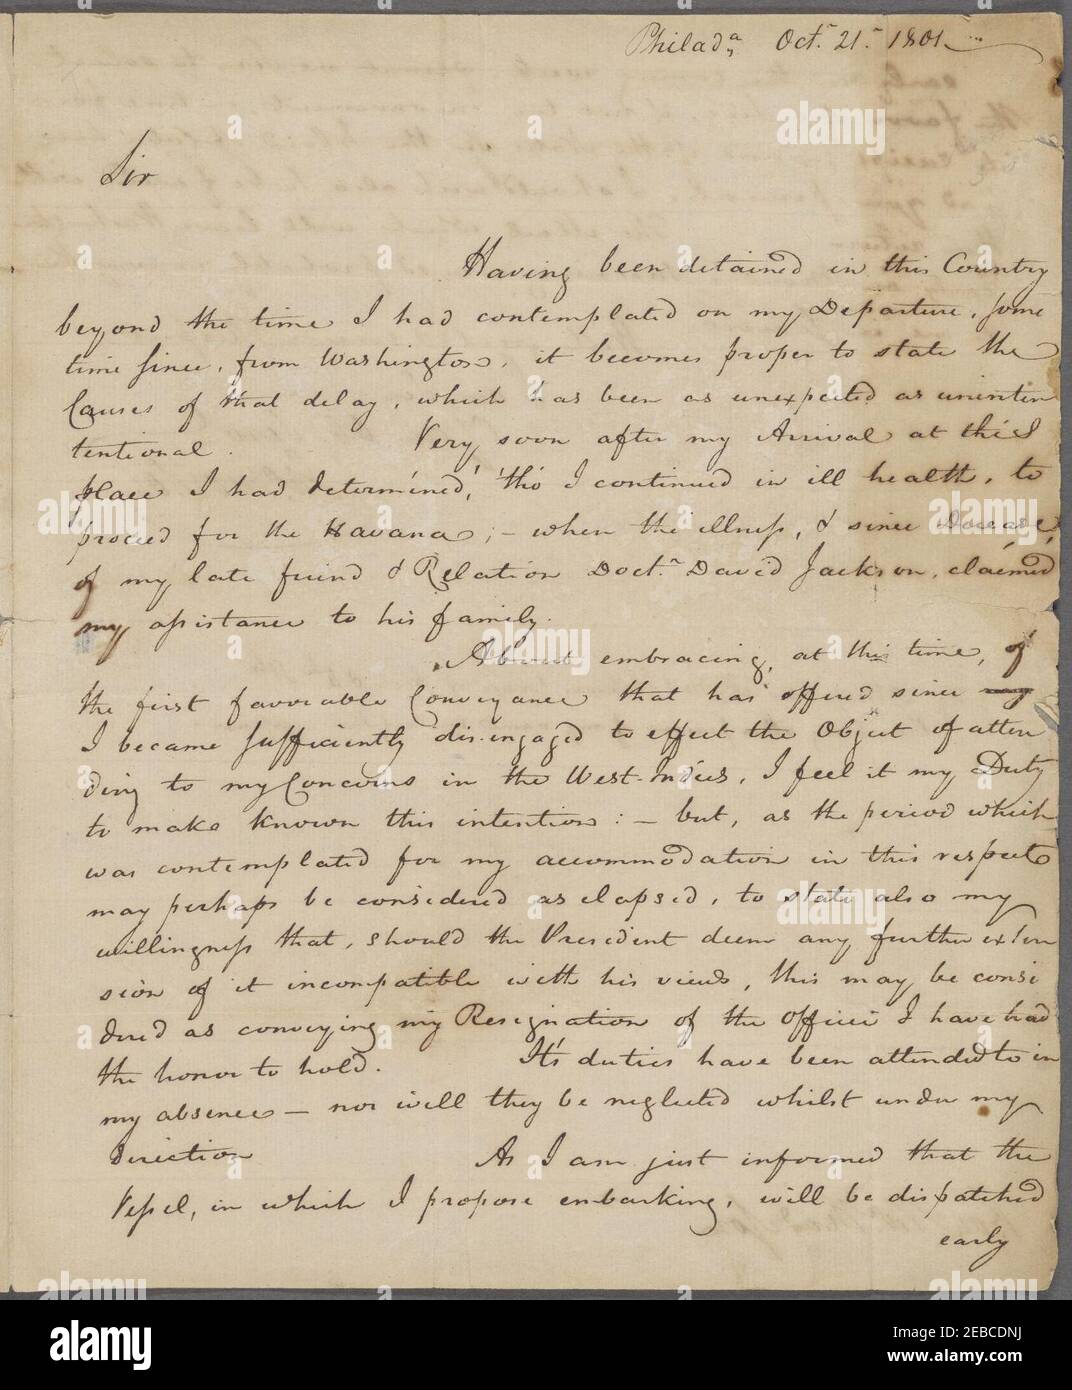 Philad.ᵃ Oct.ʳ 21.ˢᵗ 1801.
Sir
Having been detained in this Country
beyond the time I had contemplated on my Departure, some
time since, from Washington, it becomes proper to state the
Causes of that delay, which has been as unexpected as uninten
tentional. Very soon after my Arrival at this
place I had determined, tho' I continued in ill health, to
proceed for the Havana; – when the illness, & since Decease,
of my late friend & Relation Doct.ʳ David Jackson, claimed
my assistance to his family.
About embracing, at this time, of
the first favorable Conveyance that has offered since my
I became sufficiently dis-engaged to effect the Object of atten
ding to my Concerns in the West-Indies, I feel it my Duty
to make known this intention: – but, as the period which
was contemplated for my accommodation in this respect
may perhaps be considered as elapsed, to state also my
willingness that, should the President deem any further exten
sion of it incompatible with his views, this may be consi
dered as conveying my Resignation of the Office I have had
the honor to hold. It's duties have been attended to in
my absence – nor will they be neglected whilst under my
direction As I am just informed that the
Vessel, in which I propose embarking, will be dispatched
early
alamy
Image ID: 2EBCDNJ
www.alamy.com